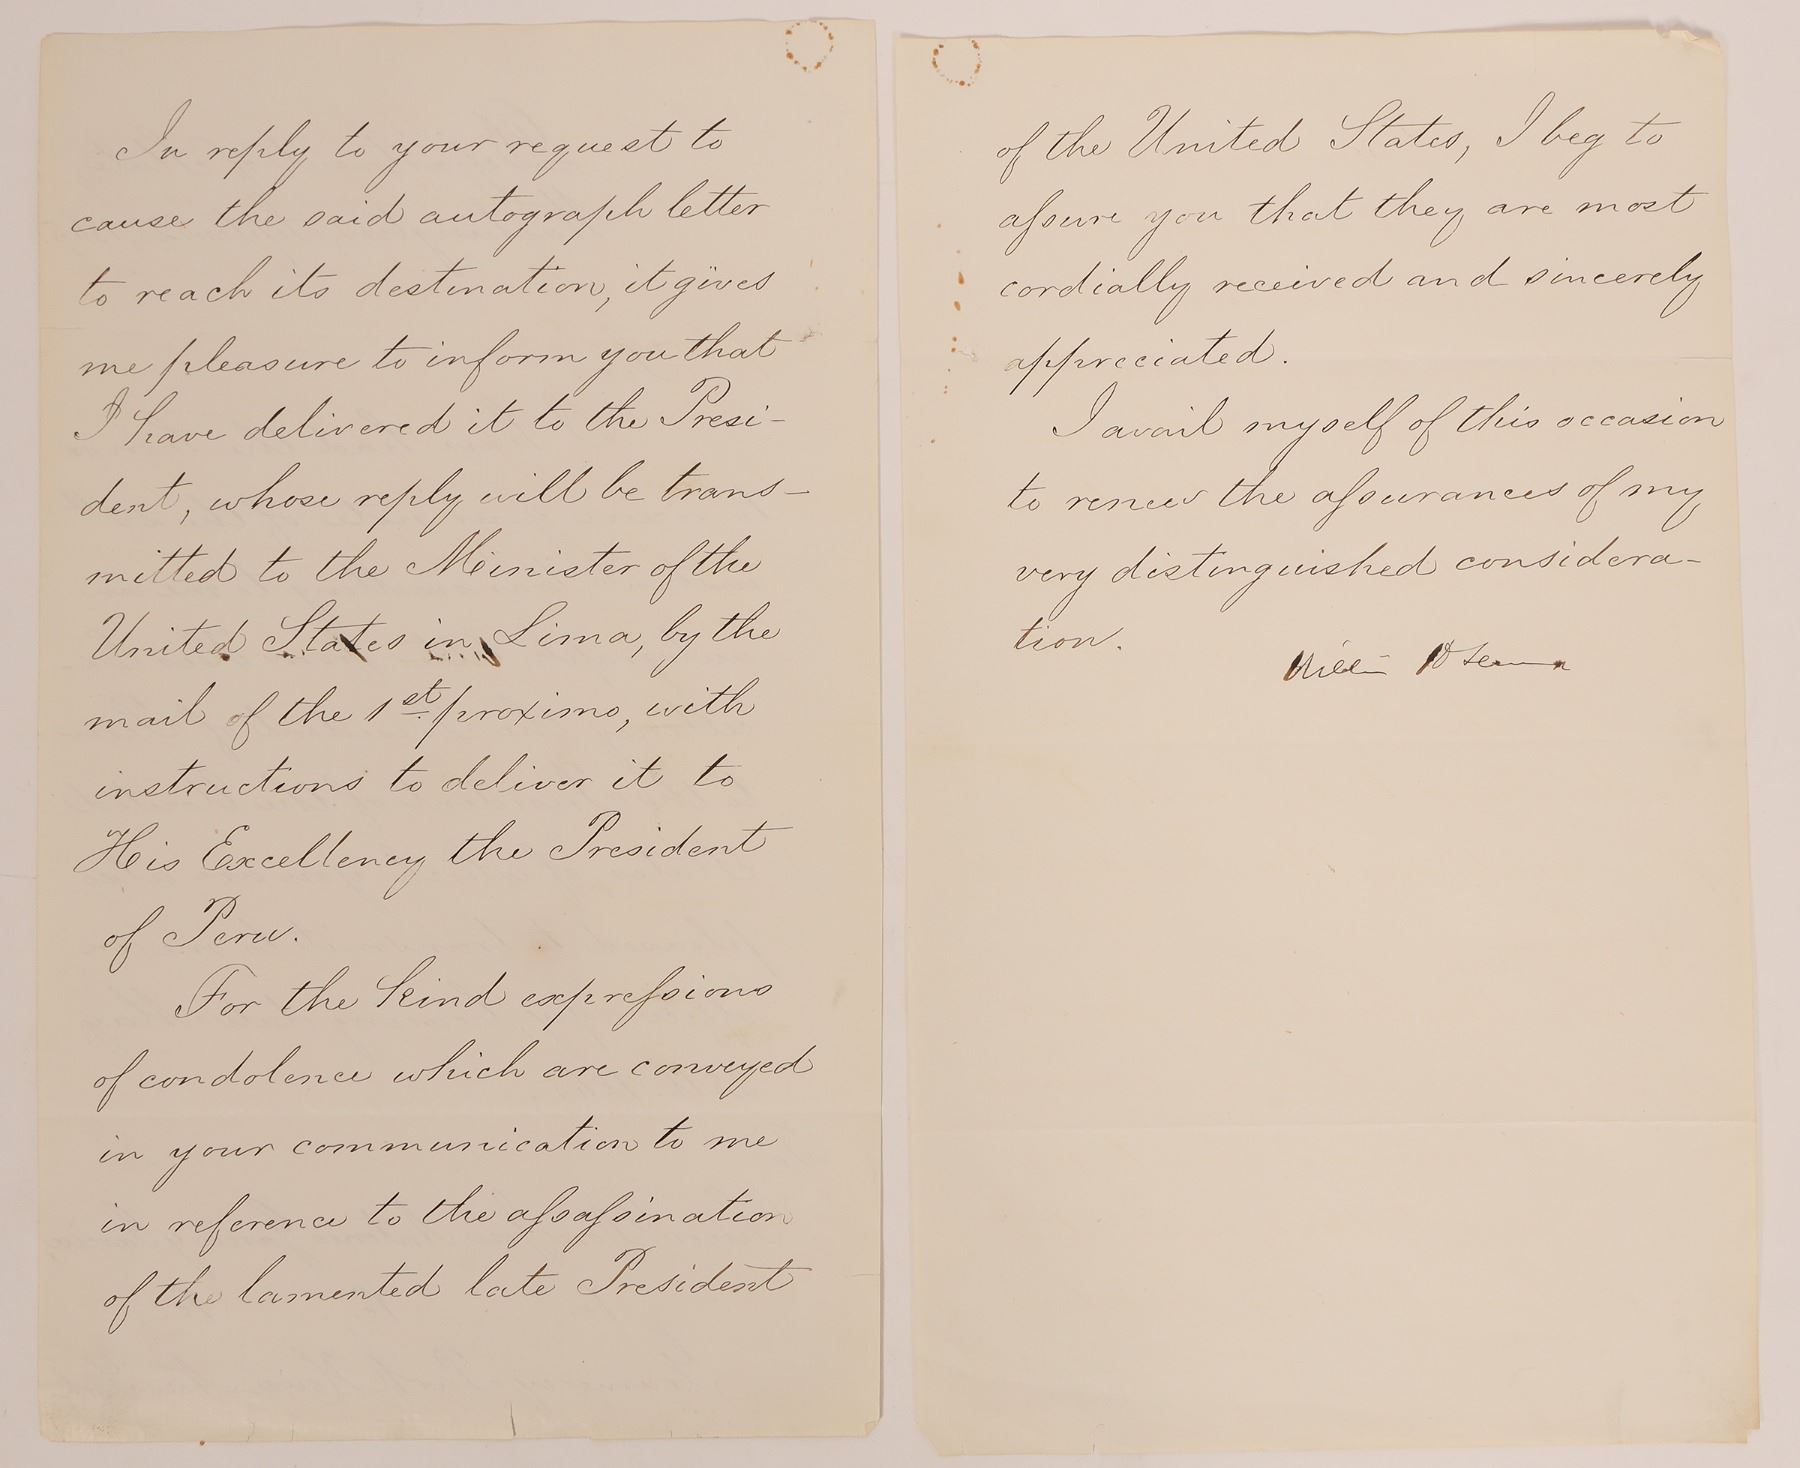 In reply to your request to
cause the said autograph letter
to reach its destination, it gives
me pleasure to inform you that
I have delivered it to the Presi-
dent, whose reply will be trans-
mitted to the Minister of the
United States in Lima, by the
mail of the 1st. proximo, with
instructions to deliver it to
His Excellency the President
of Peru.
For the kind expressions
of condolence which are conveyed
in your communication to me
in reference to the assassination
of the lamented late President
of the United States, I beg to
assure you that they are most
cordially received and sincerely
appreciated.
I avail myself of this occasion
to renew the assurances of my
very distinguished considera-
tion.